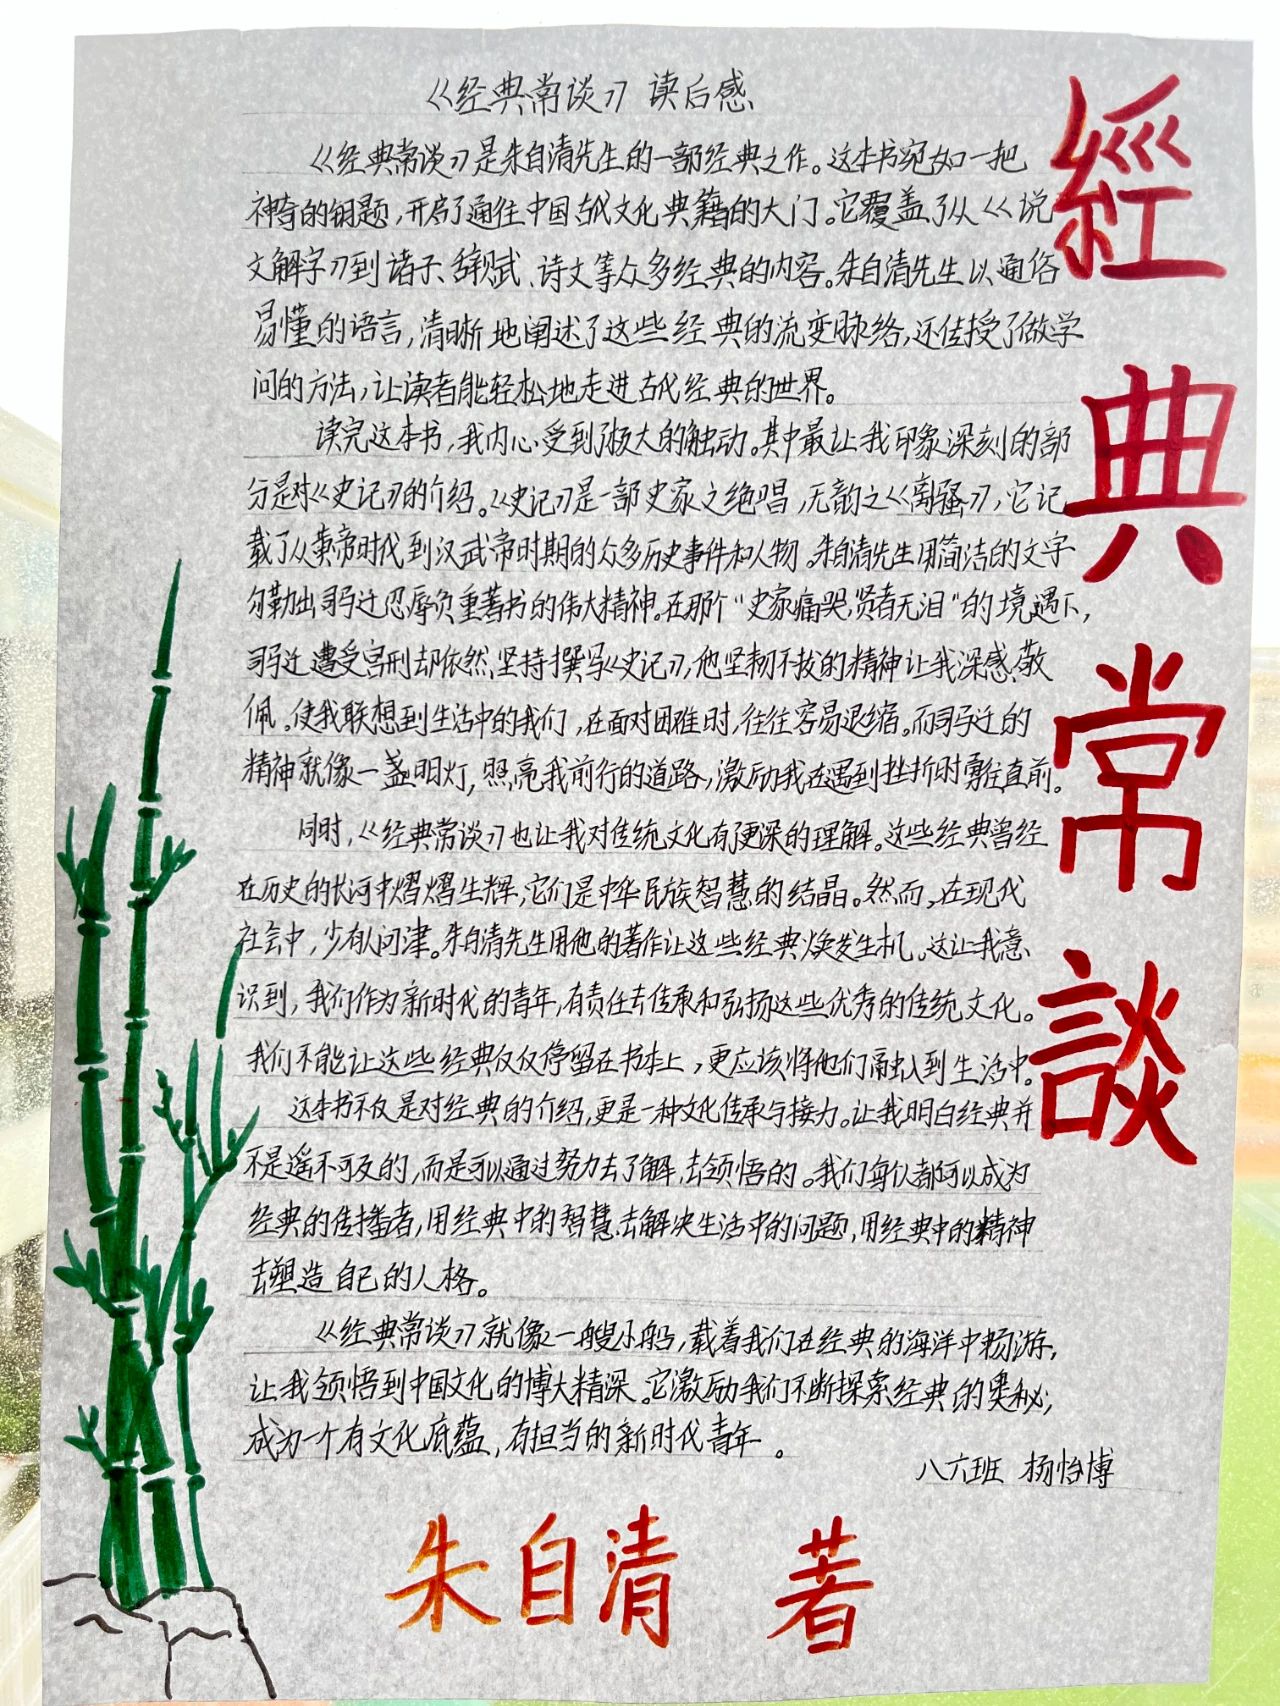 《经典常谈》读后感
《经典常谈》是朱自清先生的一部经典之作。这本书宛如一把
神奇的钥题，开启了通往中国古代文化典籍的大门。它覆盖了从《说
文解字》到诸子、辞赋、诗文等众多经典的内容。朱自清先生以通俗
易懂的语言，清晰地阐述了这些经典的流变脉络，还传授了做学
问的方法，让读者能轻松地走进古代经典的世界。
读完这本书，我内心受到了极大的触动。其中最让我印象深刻的部
分是对《史记》的介绍。《史记》是一部史家之绝唱，无韵之《离骚》，它记
载了从黄帝时代到汉武帝时期的众多历史事件和人物。朱自清先生用简洁的文字
勾勒出司马迁忍辱负重著书的伟大精神。在那个“史家痛哭，贤者无泪”的境遇下，
司马迁遭受宫刑却依然坚持撰写《史记》，他坚韧不拔的精神让我深感敬
佩。使我联想到生活中的我们，在面对困难时，往往容易退缩。而司马迁的
精神就像一盏明灯，照亮我前行的道路，激励我在遇到挫折时勇往直前。
同时，《经典常谈》也让我对传统文化有了更深的理解。这些经典曾经
在历史的长河中熠熠生辉，它们是中华民族智慧的结晶。然而，在现代
社会中，少有人问津。朱自清先生用他的著作让这些经典焕发生机。这让我意
识到，我们作为新时代的青年，有责任去传承和弘扬这些优秀的传统文化。
我们不能让这些经典仅仅停留在书本上，更应该将他们融入到生活中。
这本书不仅是对经典的介绍，更是一种文化传承与接力。让我明白经典并
不是遥不可及的，而是可以通过努力去了解，去领悟的。我们身仅都可以成为
经典的传播者，用经典中的智慧去解决生活中的问题，用经典中的精神
去塑造自己的人格。
《经典常谈》就像一艘小船，载着我们在经典的海洋中畅游，
让我领悟到中国文化的博大精深。它激励我们不断探索经典的奥秘，
成为一个有文化底蕴，有担当的新时代青年。
八六班 杨怡博
經典常談
朱自清 著